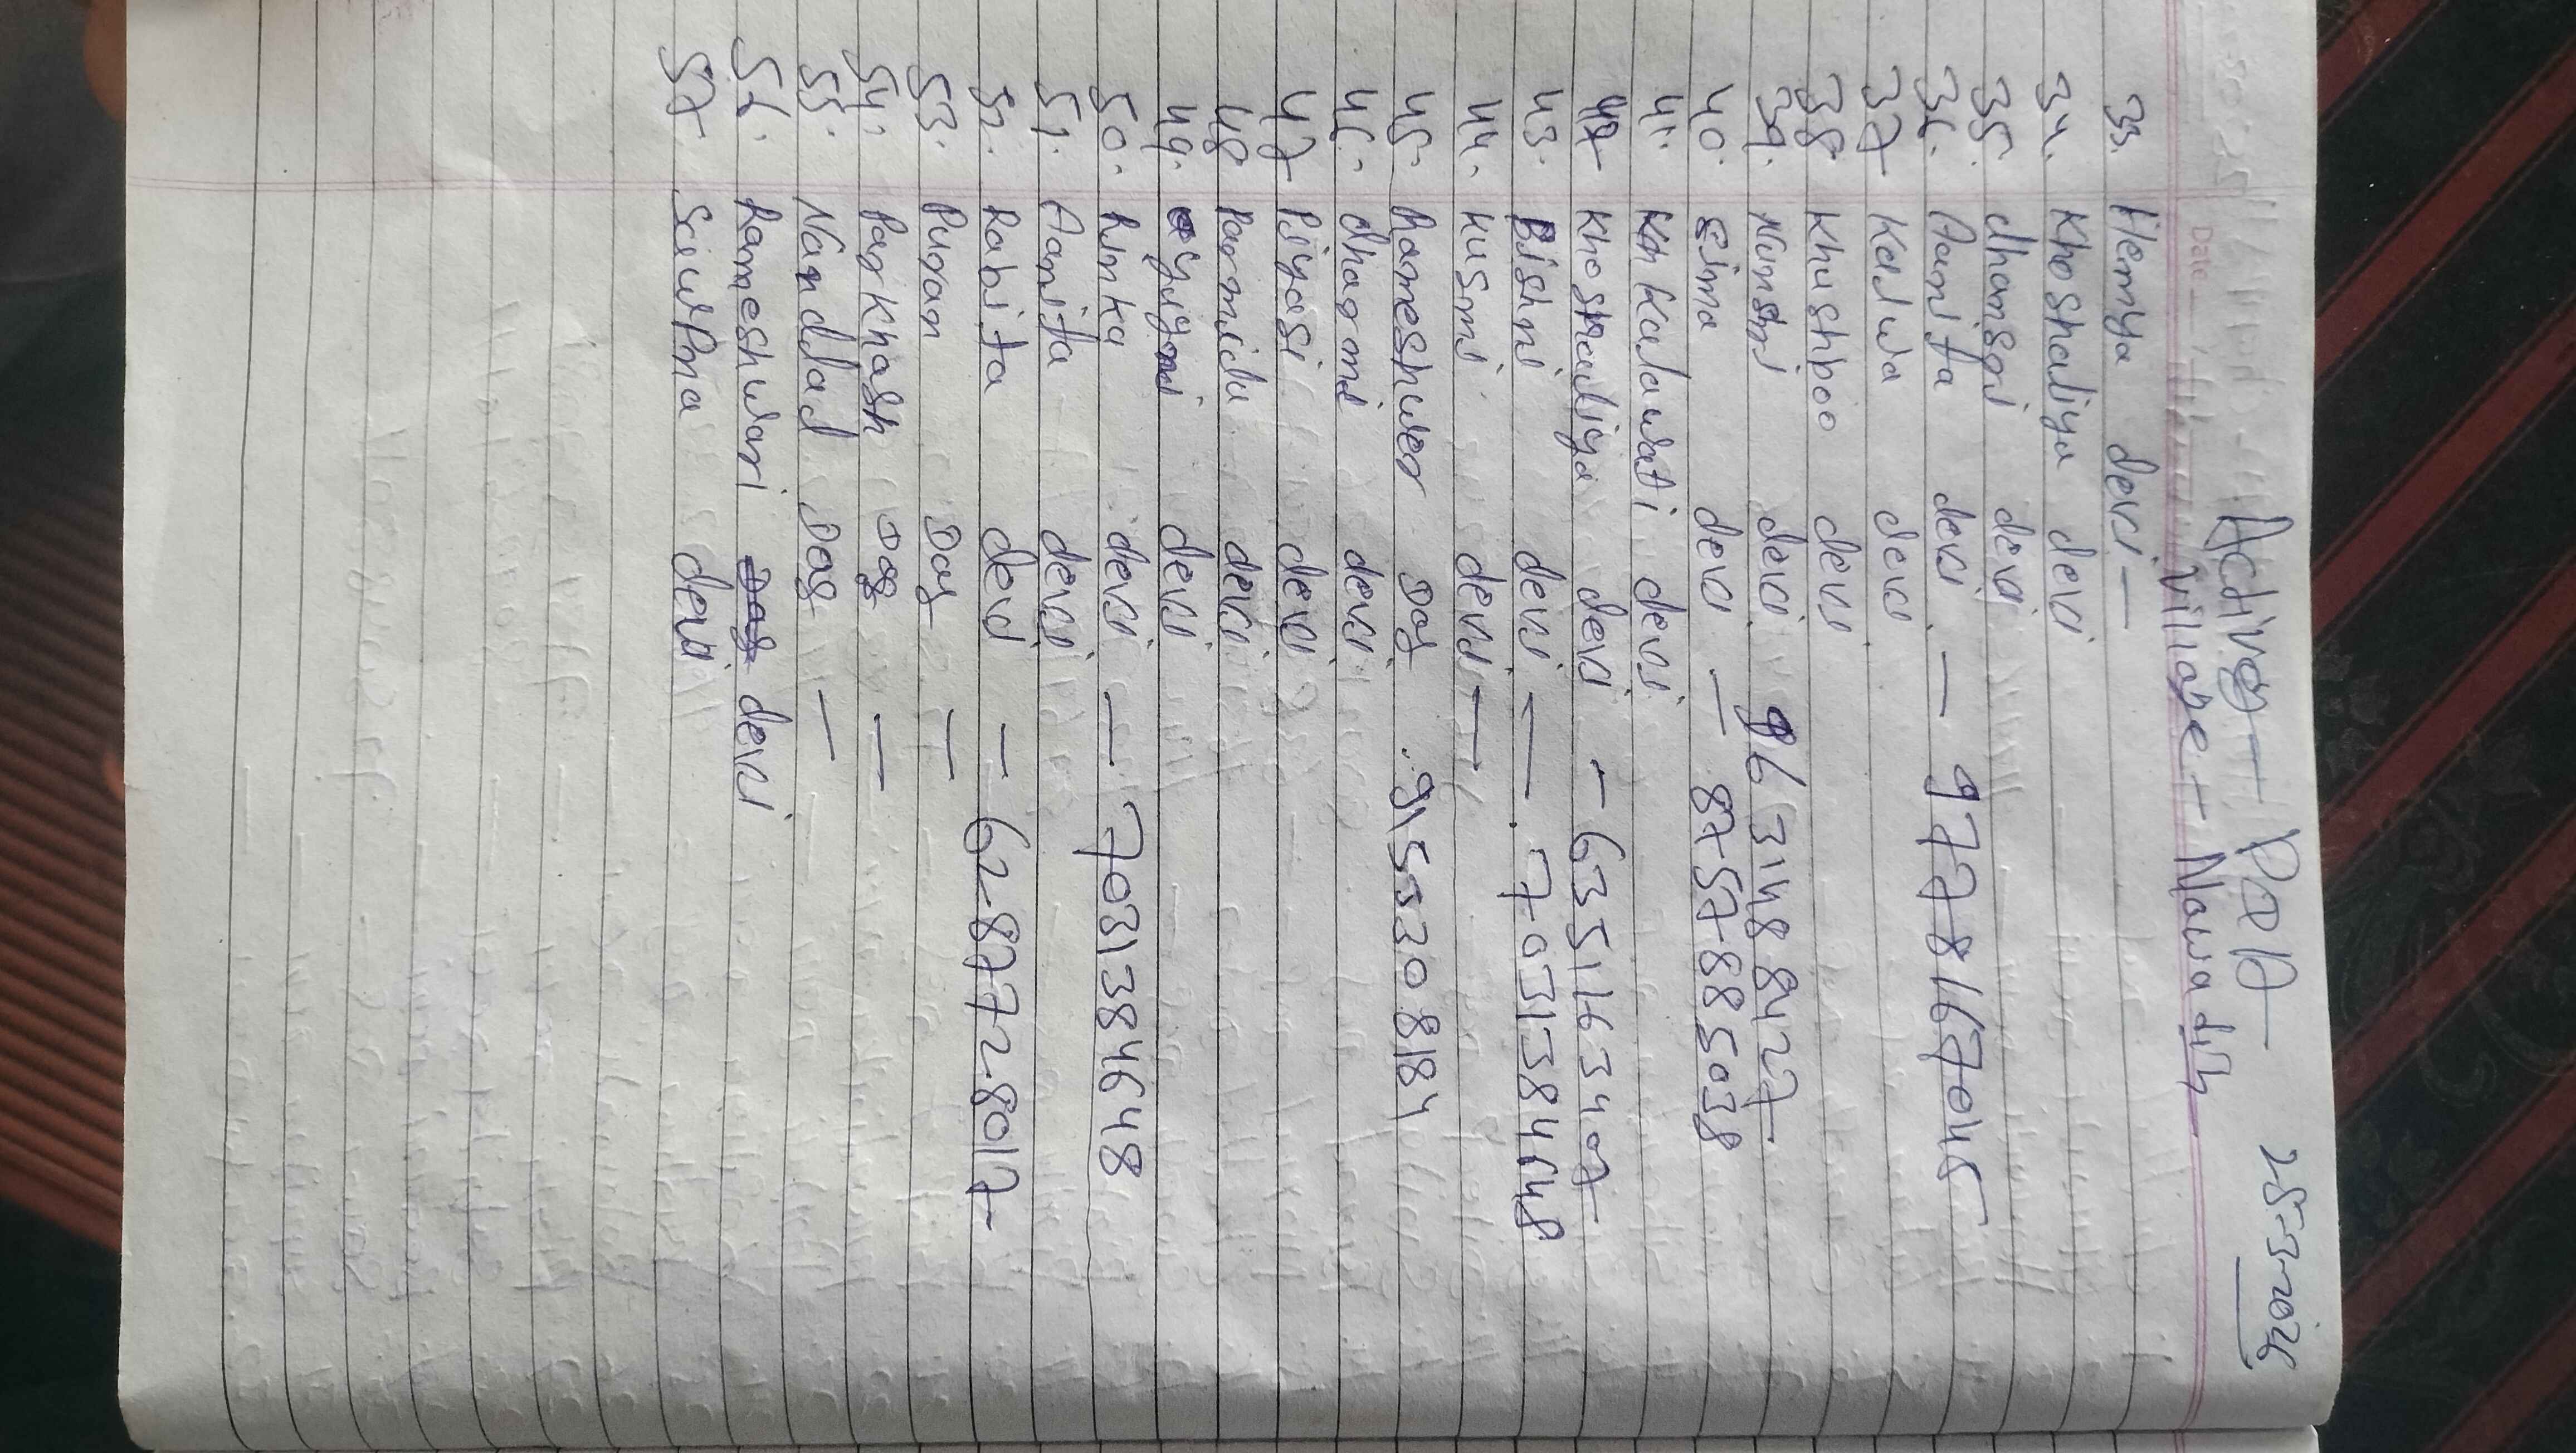 28-3-2026
Activity - PDD
Village - Nawadih
Date
33. Hemya devi —
34. Khoshaliya devi
35. dhansari devi
36. Aanita devi — 9778167045
37 Kalwa devi
38 Khushboo devi
39. Nunsni devi 9631488427
40. Sima devi — 8757885038
41. Kalawati devi
42 Khoshauliya devi - 6351163407
43. Bishni devi — 7031384648
44. Kusmi devi —
45. Rameshwer Das 9155308184
46. dhagmi devi
47 Piyasi devi
48 Parmila devi
49. devi
50. Rinka devi — 7031384648
51. Aanita devi
52. Rabita devi — 6287728017
53. Puran Das —
54. Parkhash Das —
55. Nanddad Das —
56. Rameshwari Das devi
57. devi